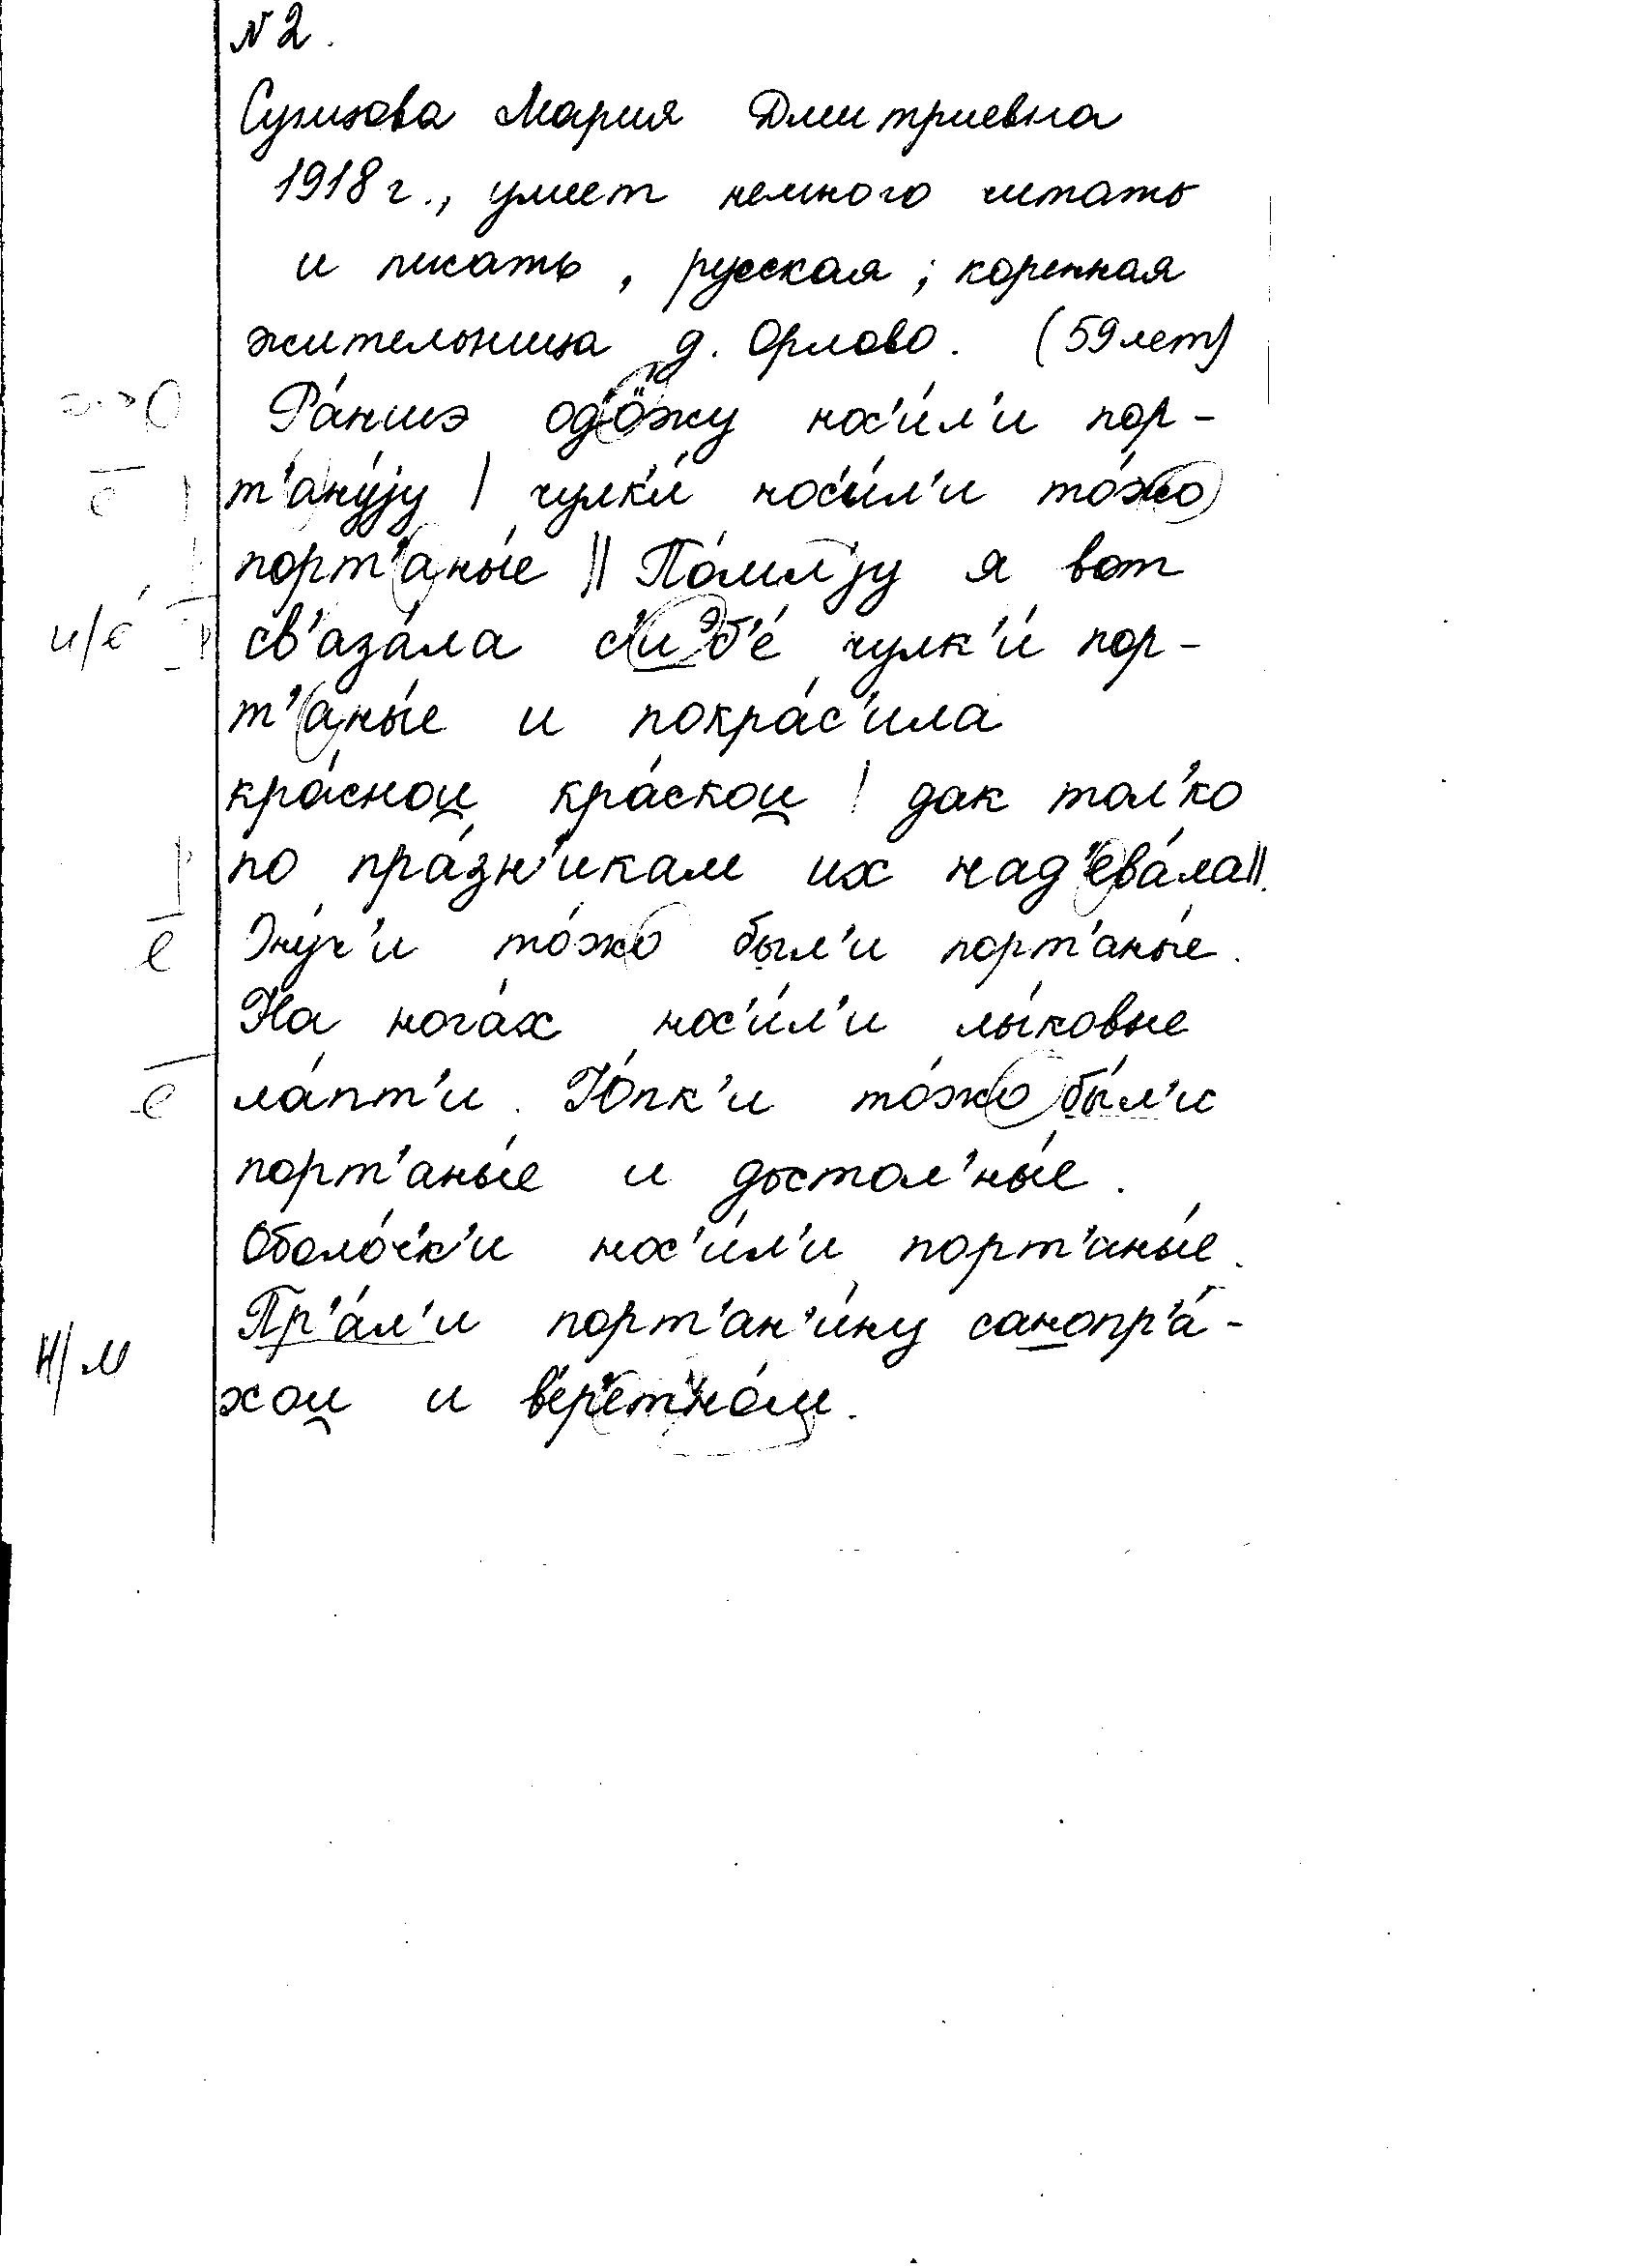 N 2.
Сунцова Мария Дмитриевна
1918 г., умеет немного читать
и писать, русская; коренная
жительница д. Орлово. (59 лет)
Ра́ншэ од'о́жу нос'и́л'и пор-
т'ану́jу | чулк'и́ нос'и́л'и то́жо
порт'аны́е || По́мн'jу я вот
св'аза́ла с'иэб'е́ чулк'и́ пор-
т'аны́е и покра́с'ила
кра́снои̯ кра́скои̯ | дак тол'ко
по пра́зн'икам их над'ева́ла ||.
Ону́ч'и то́жо был'и порт'аны́е.
На нога́х нос'и́л'и лы́ковые
ла́пт'и. Ю́пк'и то́жо бы́л'и
порт'аны́е и достол'ны́е.
Оболо́чк'и нос'и́л'и порт'аны́е.
Пр'а́л'и порт'ан'и́ну санопр'а́-
хои̯ и в'ер'ет'но́м.
e
и/е
e
e
н/м